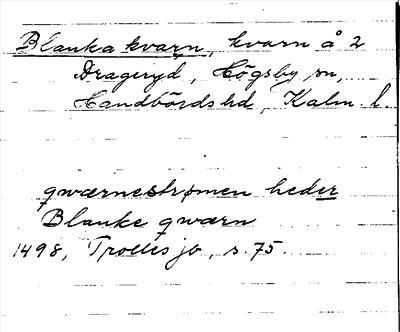 Blanka kvarn, kvarn å 2
Drageryd, Högsby sn,
Handbörds hd, Kalm. l.
qwærnestrømen heder
Blanke qwærn
1498, Trolles jb, s. 75.